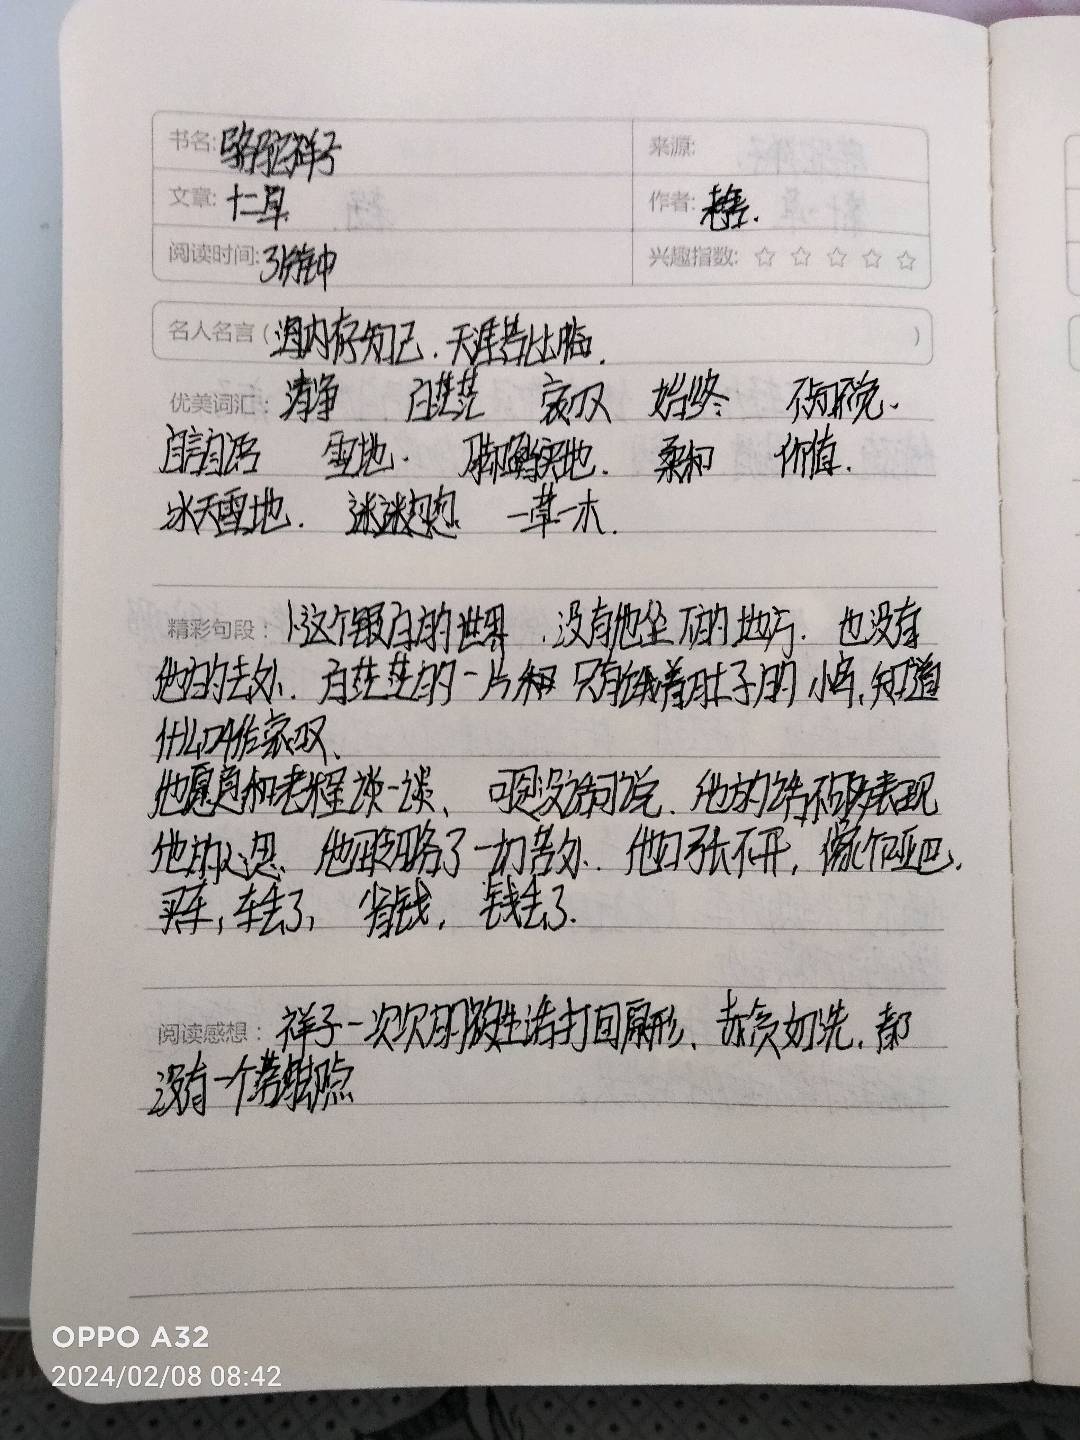 书名: 骆驼祥子
来源:
文章: 十二章
作者: 老舍.
阅读时间: 3分钟
兴趣指数: ☆ ☆ ☆ ☆ ☆
名人名言( 海内存知己.天涯若比临. )
优美词汇: 清净 白茫茫 哀叹 始终 不知不觉.
自言自语 雪地. 脚踏实地. 柔和 价值.
冰天雪地. 迷迷忽忽 一草一木.
精彩句段: 1.这个银白的世界.没有他坐下的地方.也没有
他的去处.白茫茫的一片 只有饿着肚子的小鸟,知道
什么叫作哀叹、
他愿意和老程谈一谈、可是没话可说.他的话不够表现
他的 他 了一切苦处.他口张不开,像个哑巴.
买车,车丢了,省钱,钱丢了.
阅读感想: 祥子一次次的被生活打回原形、赤贫如洗.都
没有一个落脚点
OPPO A32
2024/02/08 08:42